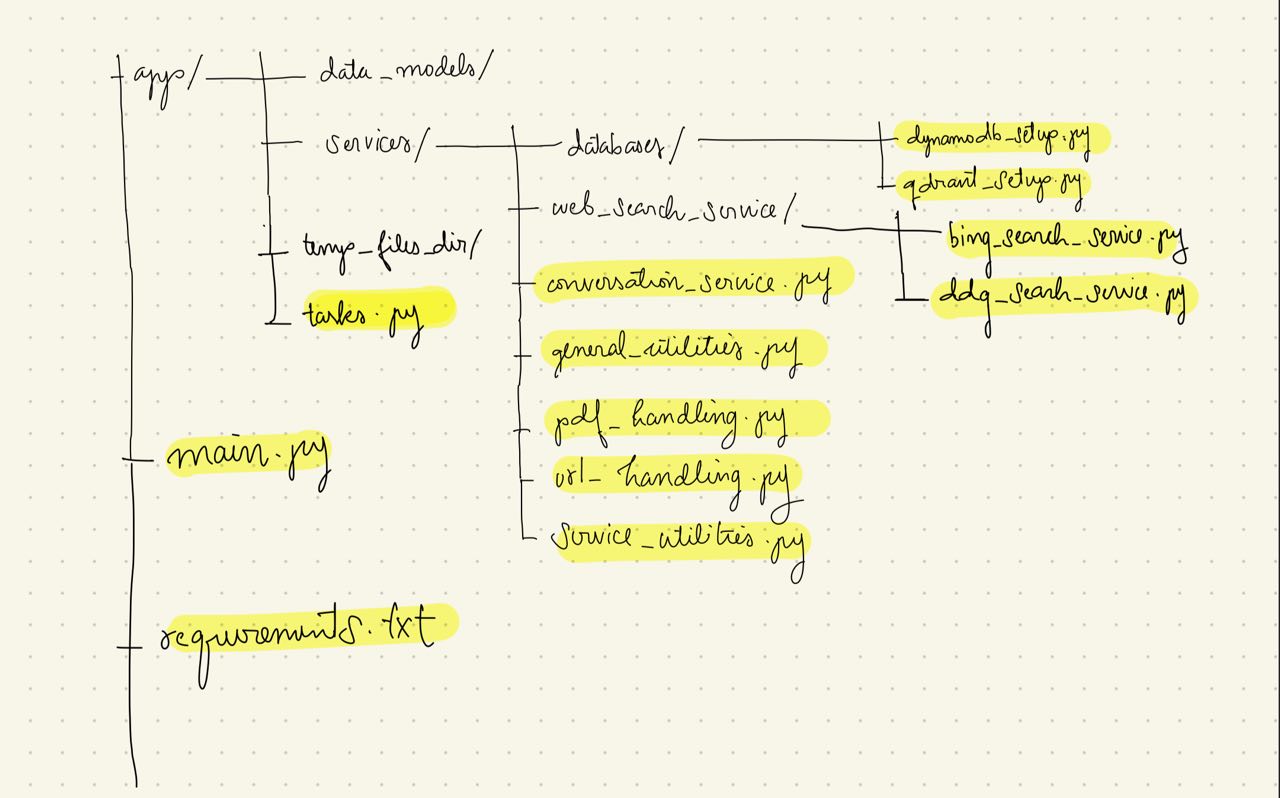 app/
data_models/
services/
databases/
dynamodb_setup.py
qdrant_setup.py
web_search_service/
bing_search_service.py
ddg_search_service.py
conversation_service.py
general_utilities.py
pdf_handling.py
url_handling.py
service_utilities.py
temp_files_dir/
tasks.py
main.py
requirements.txt